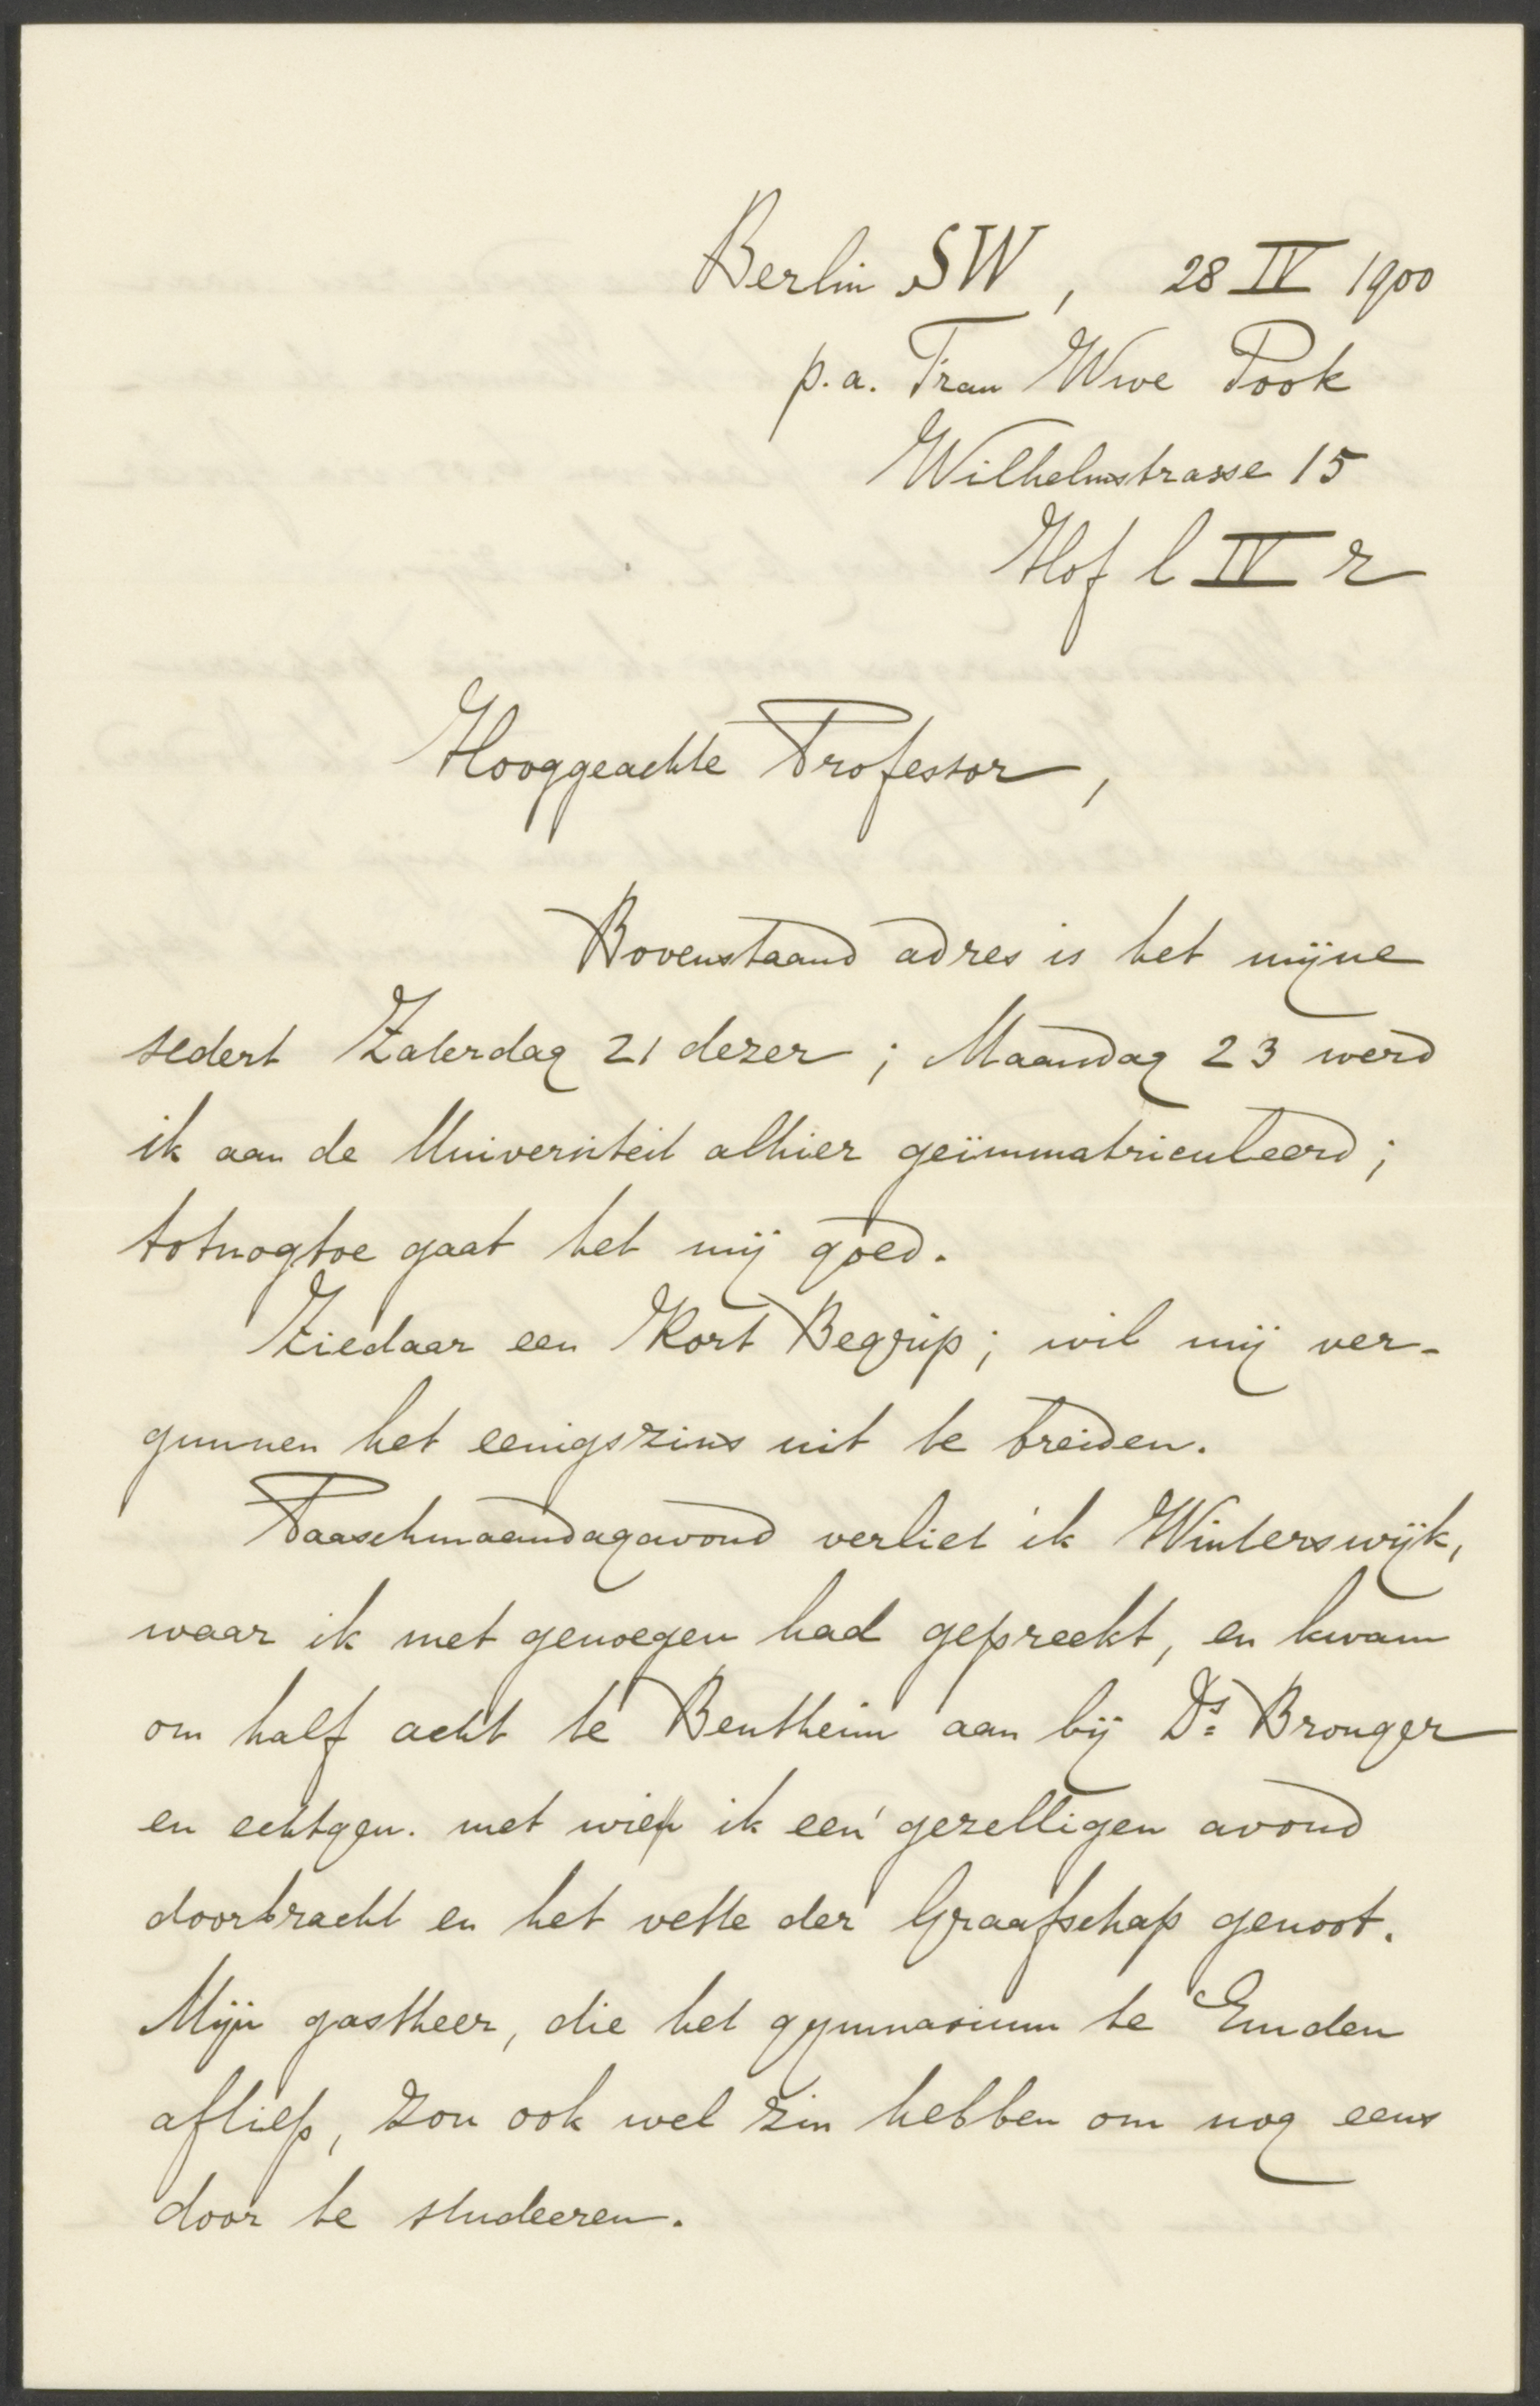 Berlin SW, 28 IV 1900
p.a. Frau Wwe Pook
Wilhelmstrasse 15
Hof l IV r
Hooggeachte Professor,
Bovenstaand adres is het mijne
sedert Zaterdag 21 dezer; Maandag 23 werd
ik aan de Universiteit alhier geïmmatriculeerd;
totnogtoe gaat het mij goed.
Ziedaar een Kort Begrip; wil mij ver-
gunnen het eenigszins uit te breiden.
Paaschmaandagavond verliet ik Winterswijk,
waar ik met genoegen had gepreekt, en kwam
om half acht te Bentheim aan bij Ds. Bronger
en echtgen. met wien ik een gezelligen avond
doorbracht en het vette der Graafschap genoot.
Mijn gastheer, die het gymnasium te Emden
afliep, zou ook wel zin hebben om nog eens
door te studeeren.